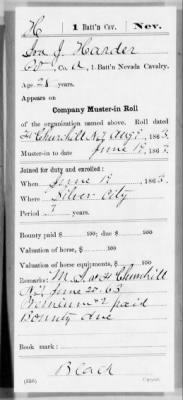 H | 1 Batt'n Cav. | Nev.
Ira J. Harder
Co. A, 1 Batt'n Nevada Cavalry.
Age 28 years.
Appears on
Company Muster-in Roll
of the organization named above. Roll dated
Ft Churchill N.T. Aug 2, 1863.
Muster-in to date June 19, 1863.
Joined for duty and enrolled:
When June 19, 1863.
Where Silver City
Period years.
Bounty paid $ 100; due $ 100
Valuation of horse, $ 100
Valuation of horse equipments, $ 100
Remarks: M. I. at Ft Churchill
N.T. June 22. 63
Premium $2 paid
Bounty due
Book mark:
Beach
(356) Copyist.